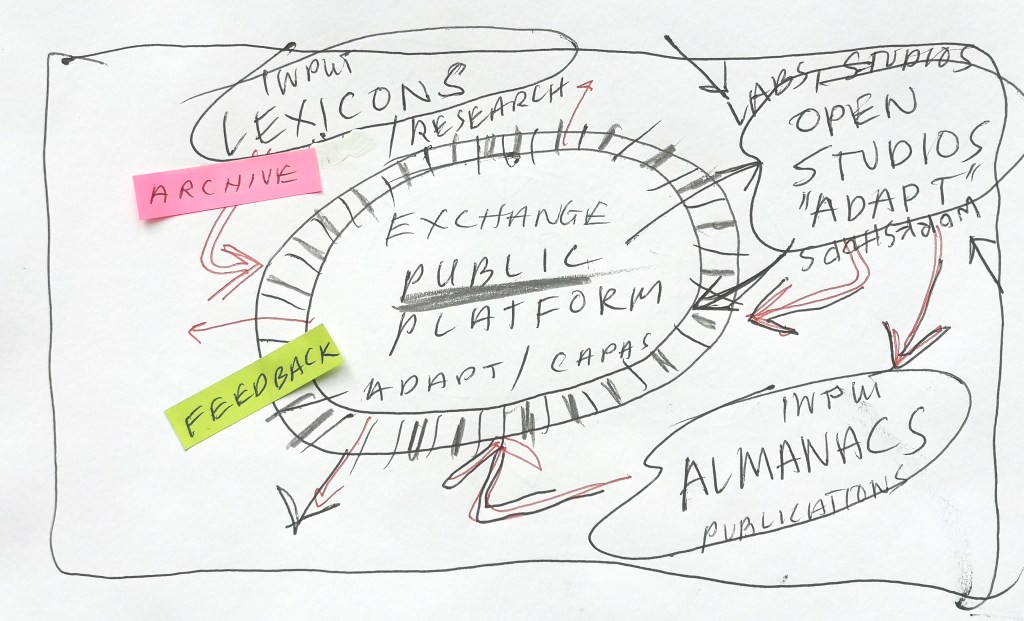 INPUT
LEXICONS
/RESEARCH
ARCHIVE
LABS, STUDIOS
OPEN
STUDIOS
"ADAPT"
WORKSHOPS
EXCHANGE
PUBLIC
PLATFORM
ADAPT / CAPAS
FEEDBACK
INPUT
ALMANACS
PUBLICATIONS